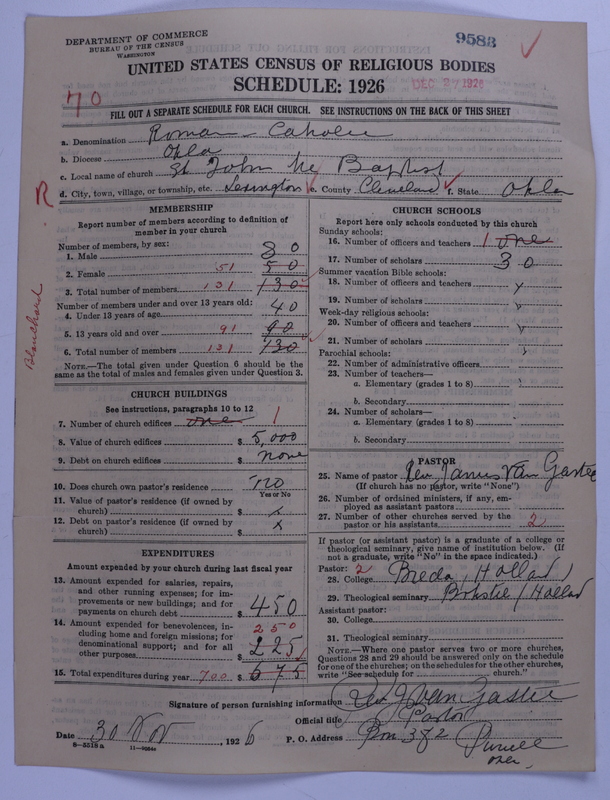 DEPARTMENT OF COMMERCE
BUREAU OF THE CENSUS
WASHINGTON
9583
UNITED STATES CENSUS OF RELIGIOUS BODIES
SCHEDULE: 1926
DEC 27 1926
70
FILL OUT A SEPARATE SCHEDULE FOR EACH CHURCH. SEE INSTRUCTIONS ON THE BACK OF THIS SHEET
a. Denomination Roman Catholic
b. Diocese Okla
c. Local name of church St John the Baptist
R
d. City, town, village, or township, etc. Lexington e. County Cleveland f. State Okla
Blanchard
MEMBERSHIP
Report number of members according to definition of
member in your church
Number of members, by sex:
1. Male 80
2. Female 51 50
3. Total number of members 131 130
Number of members under and over 13 years old:
4. Under 13 years of age 40
5. 13 years old and over 91 90
6. Total number of members 131 130
NOTE.—The total given under Question 6 should be
same as the total of males and females given under Question 3.
CHURCH BUILDINGS
See instructions, paragraphs 10 to 12
7. Number of church edifices one 1
8. Value of church edifices $ 5,000
9. Debt on church edifices $ none
10. Does church own pastor's residence no
Yes or No
11. Value of pastor's residence (if owned by
church) $ x
12. Debt on pastor's residence (if owned by
church) $ x
EXPENDITURES
Amount expended by church during last fiscal year
13. Amount expended for salaries, repairs,
and other running expenses; for im-
provements or new buildings; and for
payments on church debt $ 450
14. Amount expended for benevolences, in-
cluding home and foreign missions; for
denominational support; and for all
other purposes 250 $ 225
15. Total expenditures during year 700 $ 675
CHURCH SCHOOLS
Report here only schools conducted by this church
Sunday schools:
16. Number of officers and teachers 1 one
17. Number of scholars 30
Summer vacation Bible schools:
18. Number of officers and teachers
19. Number of scholars
Week-day religious schools:
20. Number of officers and teachers
21. Number of scholars
Parochial schools:
22. Number of administrative officers
23. Number of teachers—
a. Elementary (grades 1 to 8)
b. Secondary
24. Number of scholars—
a. Elementary (grades 1 to 8)
b. Secondary
PASTOR
25. Name of pastor Rev. James Van Gastel
(If church has no pastor, write "None")
26. Number of ordained ministers, if any, em-
ployed as assistant pastors
27. Number of other churches served by the
pastor or his assistants 2
If pastor (or assistant pastor) is a graduate of a college or
theological seminary, give name of institution below. (If
not a graduate, write "No" in the space indicated.)
Pastor: 2
28. College Breda, Holland
29. Theological seminary Holland
Assistant pastor:
30. College
31. Theological seminary
NOTE.—Where one pastor serves two or more churches,
Questions 28 and 29 should be answered only on the schedule
for one of the churches; on the schedules for the other churches,
write "See schedule for church."
Signature of person furnishing information Rev J Van Gastel
Official title Pastor
Date 30 Nov, 1926 P. O. Address Box 382 Purcell
Okla.
8—5518 a 11—9064